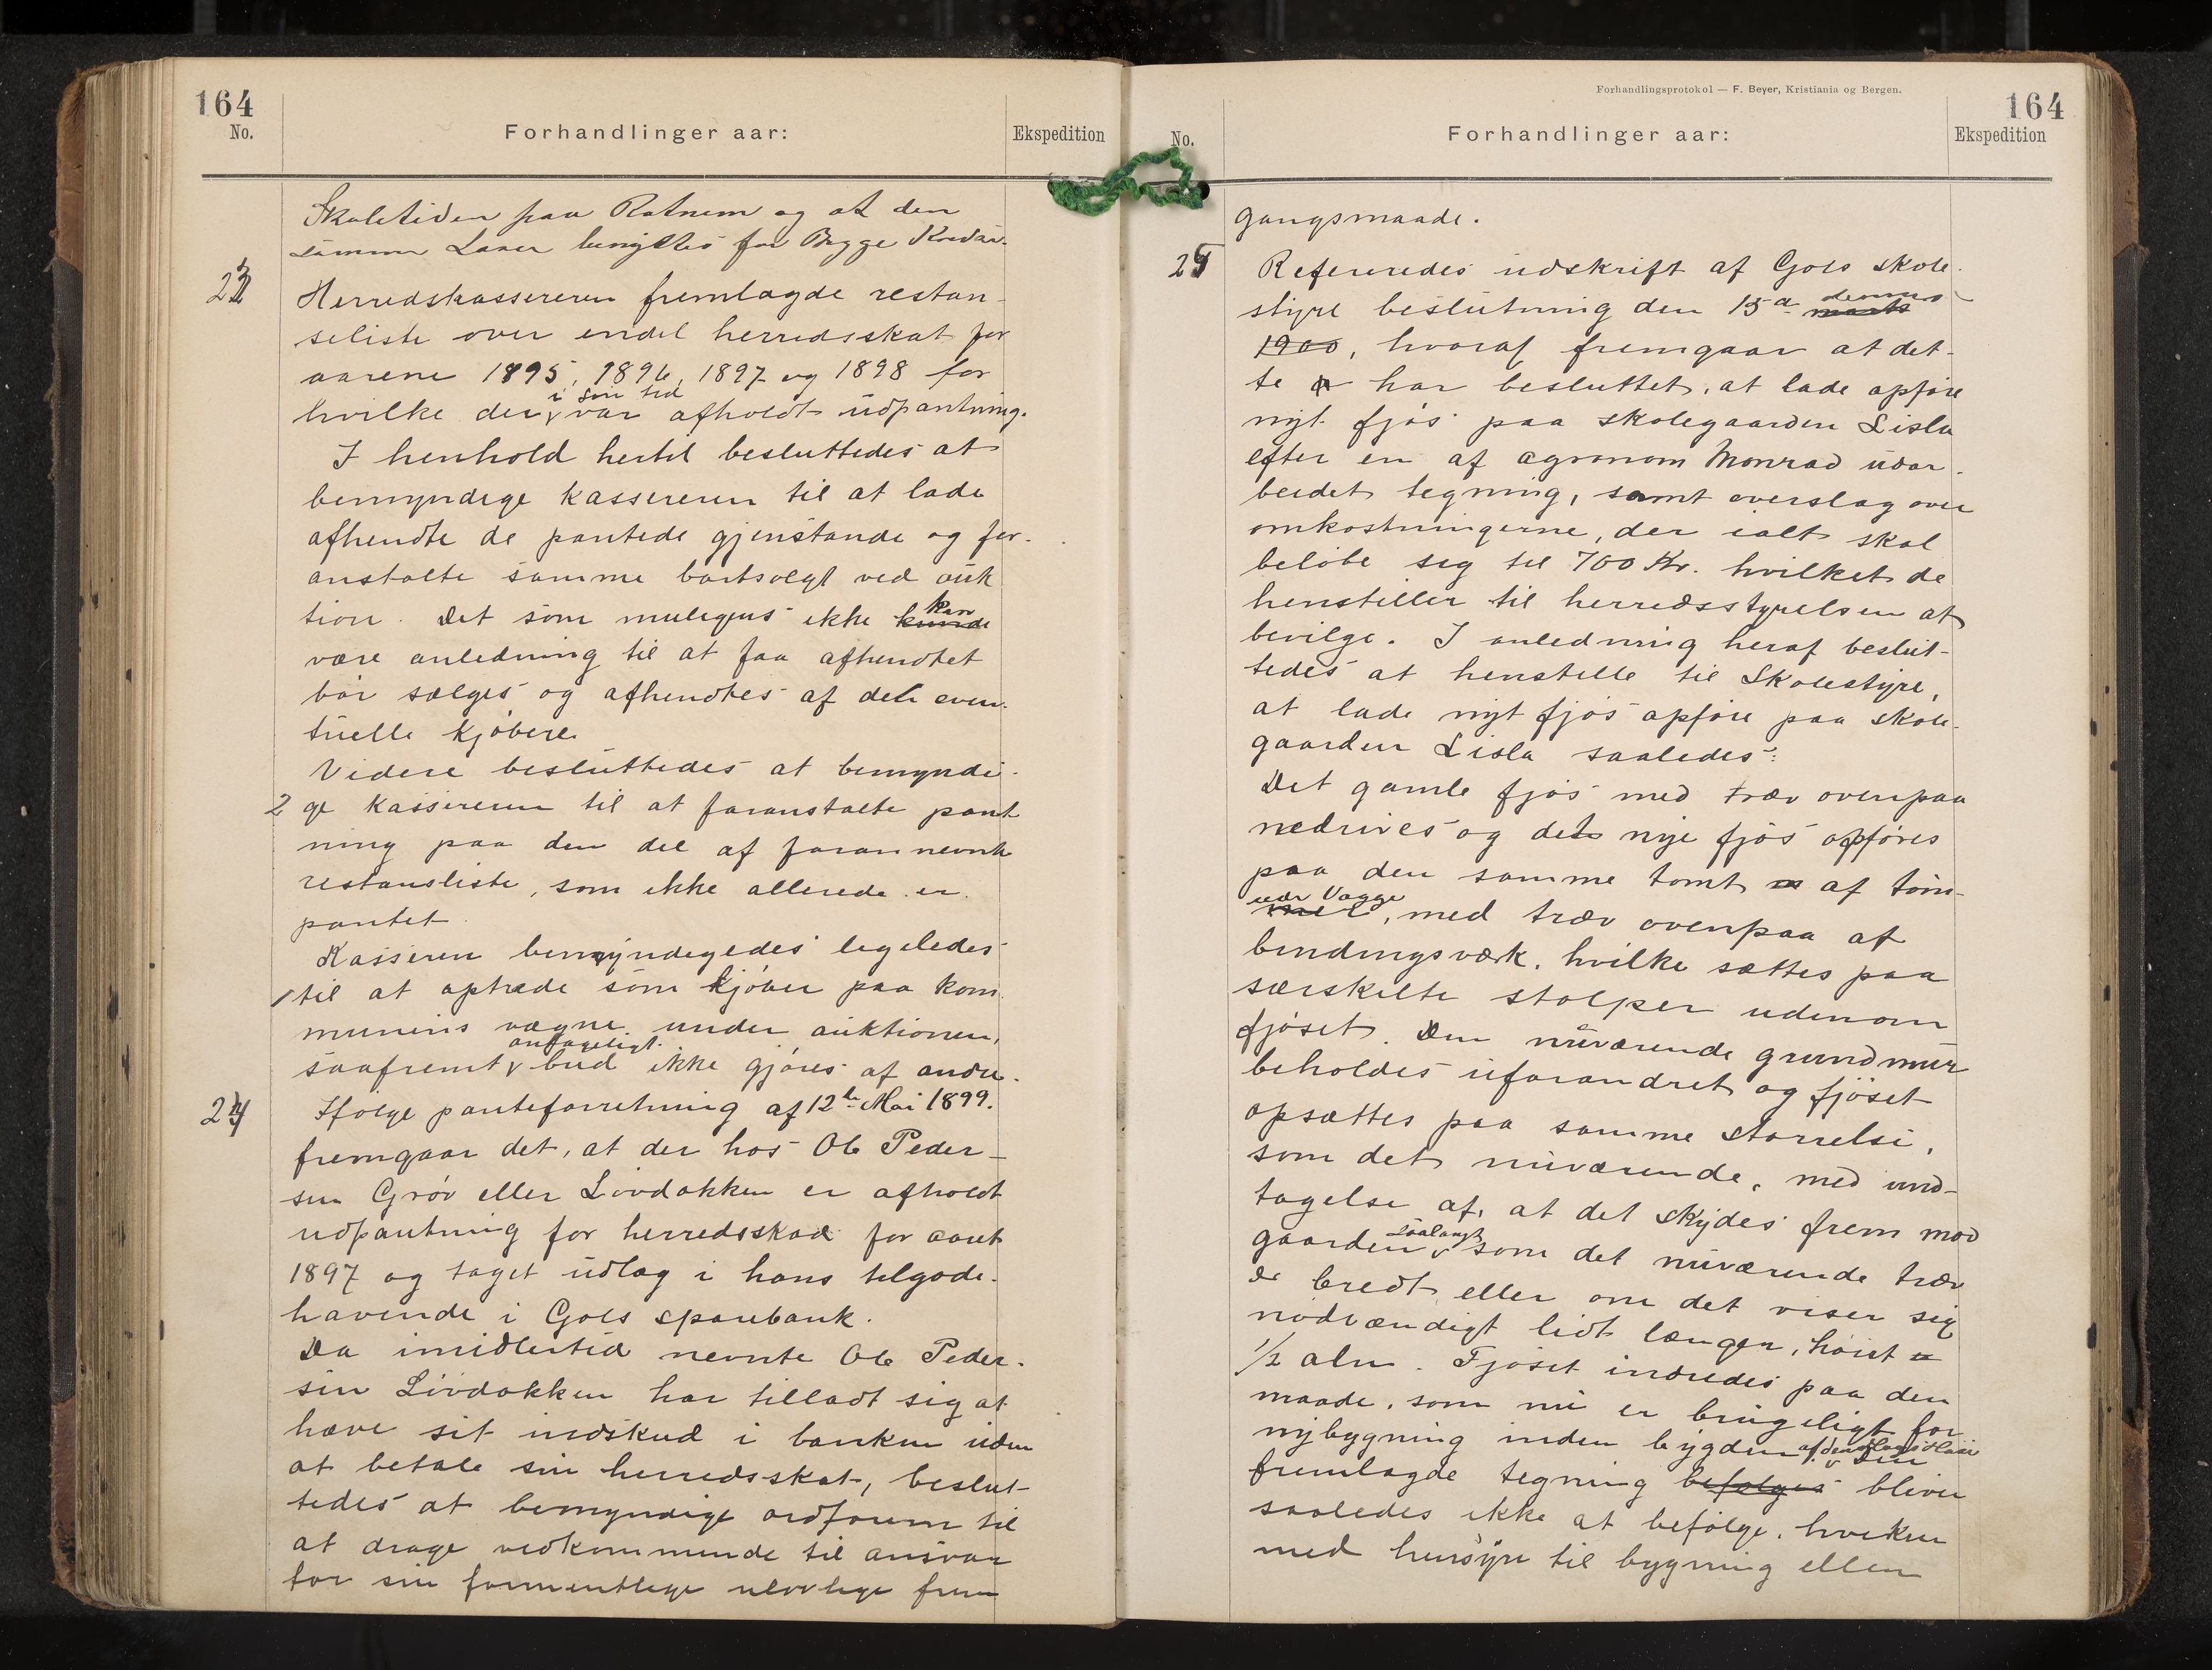 164
No.
Forhandlinger aar:
Ekspedition
Skoletiden paa Rotnem og at den
samme Lærer benyttes for Begge Kredse.
23
Herredskassereren fremlagde restan-
seliste over endel herredsskat for
aarene 1895, 1896, 1897 og 1898 for
i sin tid
hvilke der var afholdt udpantning.
I henhold hertil besluttedes at
bemyndige kassereren til at lade
afhendte de pantede gjenstande og for-
anstalte samme bortsolgt ved auk
tion. Det som muligens ikke kunde
kan
være anledning til at faa afhendtet
bør sælges og afhendtes af den even-
tuelle kjøbere.
Videre besluttedes at bemyndi-
2 ge kassereren til at foranstalte pant
ning paa den del af forannevnte
restansliste, som ikke allerede er
pantet
Kasseren bemyndigedes ligeledes
1 til at optræde som kjøber paa kom
munens vægne under auktionen,
antageligt
saafremt bud ikke gjøres af andre.
24
Ifølge panteforretning af 12te Mai 1899.
fremgaar det, at der hos Ole Peder-
sen Grøv eller Livdokken er afholdt
udpantning for herredsskat for aaret
1897 og taget udlæg i hans tilgode-
havende i Gols sparebank.
Da imidlertid nevnte Ole Peder-
sen Livdokken har tilladt sig at
hæve sit indskud i banken uden
at betale sin herredsskat, beslut-
tedes at bemyndige ordføreren til
at drage vedkommende til ansvar
for sin formentlige ulovlige frem
Forhandlingsprotokol — F. Beyer, Kristiania og Bergen.
164
No.
Forhandlinger aar:
Ekspedition
gangsmaade.
25
Refereredes udskrift af Gols skole-
styre beslutning den 15de marts
dennes
1900, hvoraf fremgaar at det-
te har besluttet, at lade opføre
nyt fjøs paa skolegaarden Lisla
efter en af agronom Monrad udar-
beidet tegning, samt overslag over
omkostningerne, der ialt skal
beløbe sig til 700 Kr. hvilket de
henstiller til herredsstyrelsen at
bevilge. I anledning heraf beslut-
tedes at henstille til Skolestyre,
at lade nyt fjøs opføre paa skole-
gaarden Lisla saaledes:
Det gamle fjøs med træv ovenpaa
nedrives og det nye fjøs opføres
paa den samme tomt af tøm-
mer, med træv ovenpaa af
bindingsværk, hvilke sættes paa
særskilte stolper udenom
fjøset. Den nuværende grundmur
beholdes uforandret og fjøset
opsættes paa samme størrelse,
som det nuværende, med und-
tagelse af, at det skydes frem mod
saalangt
gaarden som det nuværende træv
er bredt, eller om det viser sig
nødvændigt lidt længer, høiet
1/2 alen. Fjøset indredes paa den
maade, som nu er brugeligt for
nybygning inden bygden
fremlagde tegning befølges bliver
saaledes ikke at befølge, hverken
med hensyn til bygning eller